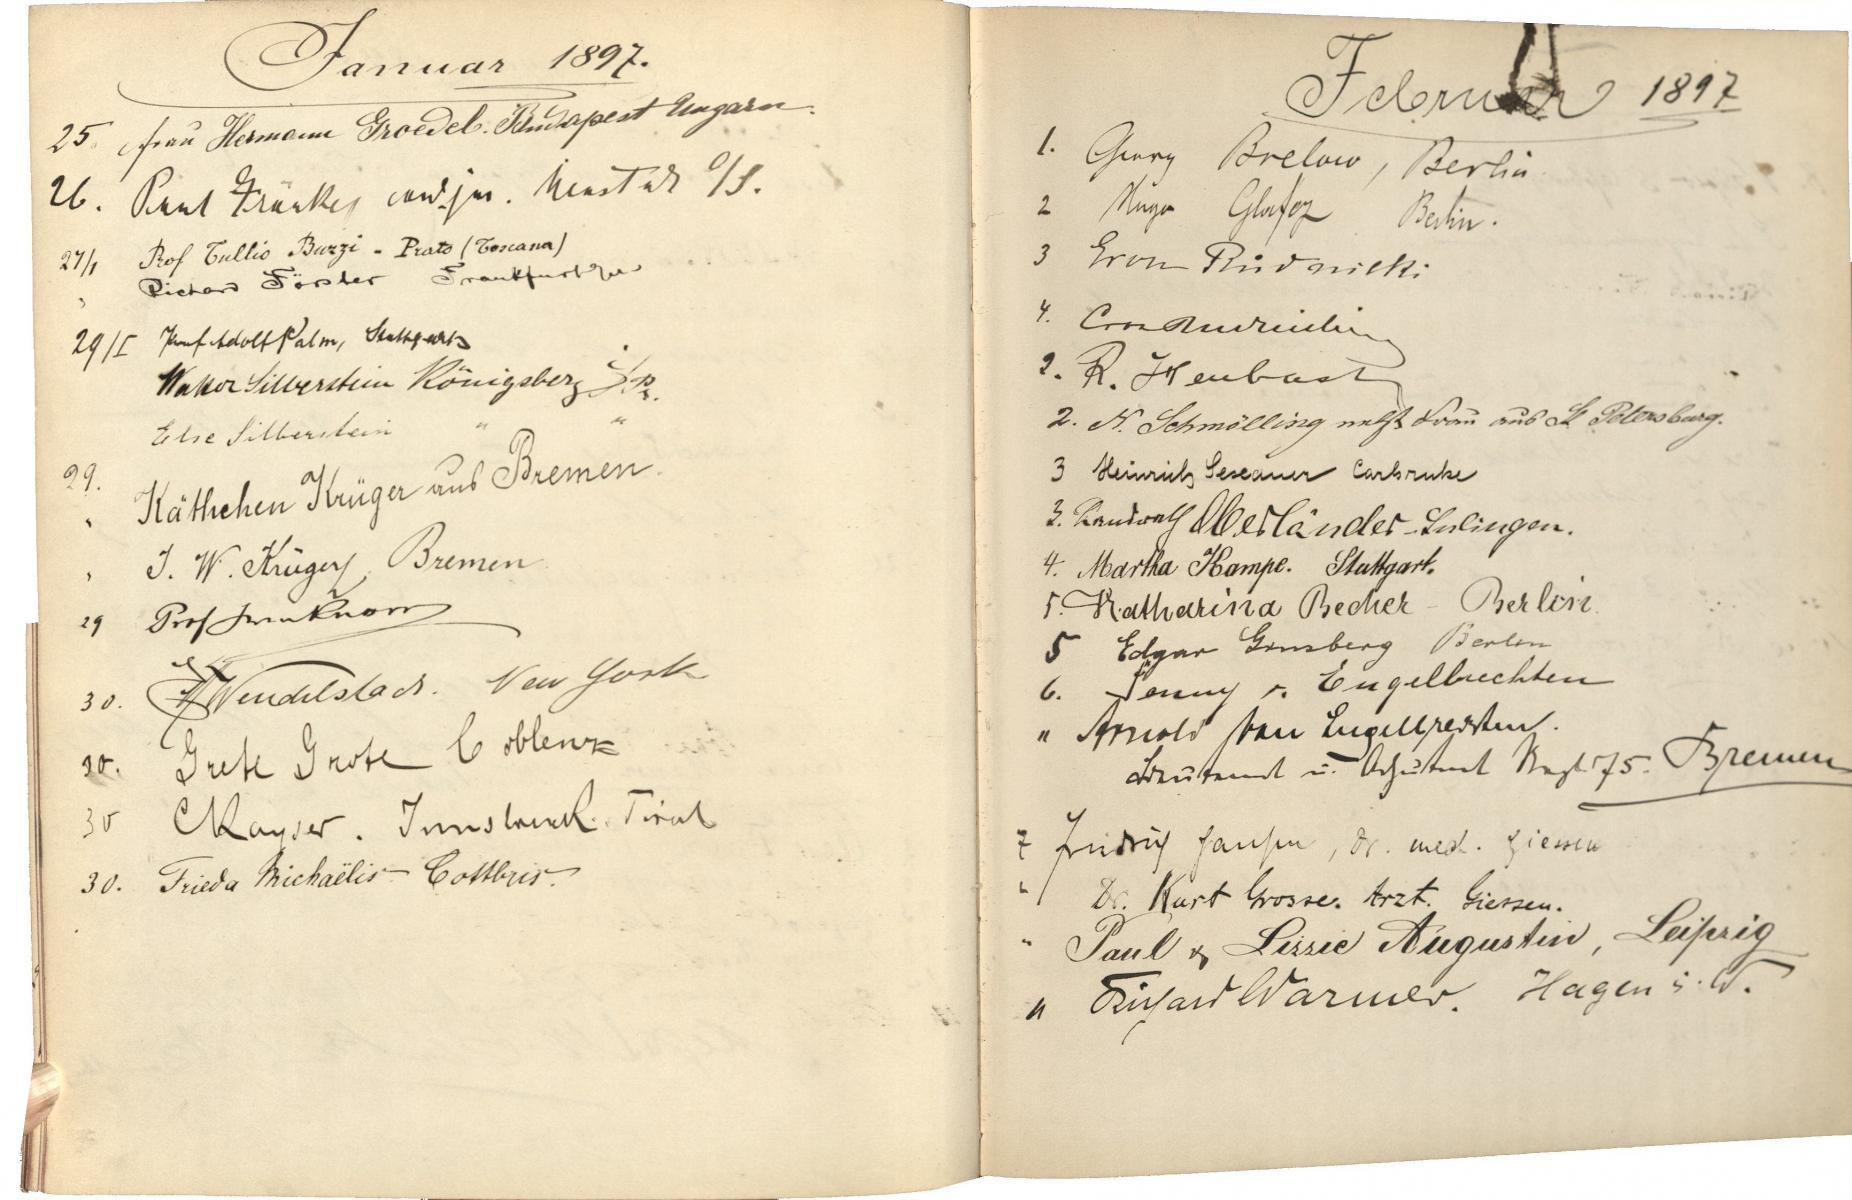 Januar 1897.
25. Frau Hermann Groedel. Budapest Ungarn.
26. Paul Fränkel cand. jur. Neustadt O/S.
27/1 Prof Tullio Buzzi - Prato (Toscana)
" Richard Förster Frankfurt
29/I Adolf Palm, Stuttgart
Walter Silberstein Königsberg i. Pr.
Else Silberstein " "
29. Käthchen Krüger aus Bremen.
" J. W. Krüger, Bremen
29 Prof
30. Wendelstadt. New York
30. Grete Grote Coblenz
30 C Kayser. Innsbruck. Tirol
30. Frieda Michaëlis - Cottbus.
Februar 1897
1. Georg Brelow, Berlin
2 Hugo Berlin.
3 Rudnicki
4.
2. R.
2. N. Schmölling nebst Frau aus St Petersburg.
3 Heinrich Carlsruhe
3. Landrath Oberländer - Sulingen.
4. Martha Hampe. Stuttgart.
5. Katharina Becher - Berlin.
5 Edgar Ginsberg Berlin
6. Jenny v. Engelbrechten
" Arnold von Engelbrechten.
Lieutenant u. Adjutant Regt 75. Bremen
7 Friedrich Janssen, Dr. med. Giessen
" Dr. Kurt Grosse. Arzt. Giessen.
" Paul & Lizzie Augustin, Leipzig
" Richard Warmer. Hagen i. W.